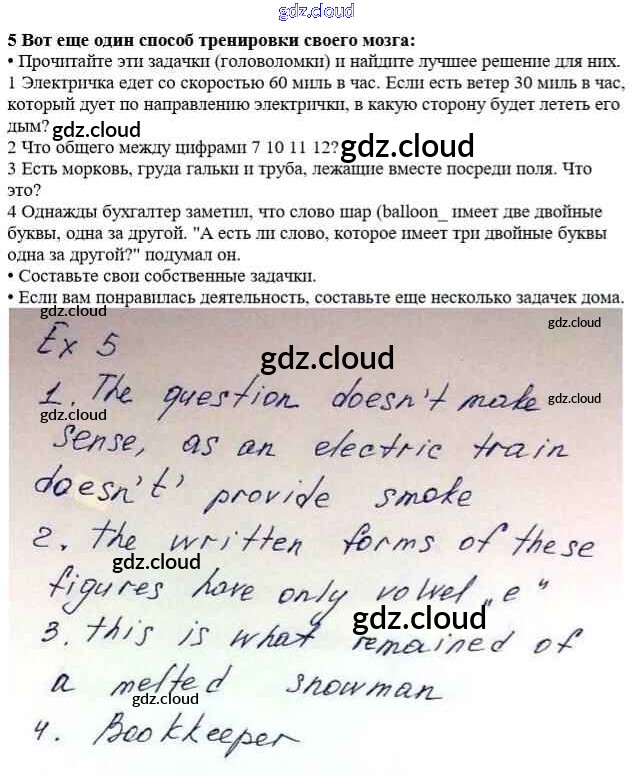 gdz.cloud
5 Вот еще один способ тренировки своего мозга:
• Прочитайте эти задачки (головоломки) и найдите лучшее решение для них.
1 Электричка едет со скоростью 60 миль в час. Если есть ветер 30 миль в час,
который дует по направлению электрички, в какую сторону будет лететь его
дым?
gdz.cloud
2 Что общего между цифрами 7 10 11 12?
gdz.cloud
3 Есть морковь, груда гальки и труба, лежащие вместе посреди поля. Что
это?
gdz.cloud
4 Однажды бухгалтер заметил, что слово шар (balloon_ имеет две двойные
буквы, одна за другой. "А есть ли слово, которое имеет три двойные буквы
одна за другой?" подумал он.
gdz.cloud
• Составьте свои собственные задачки.
• Если вам понравилась деятельность, составьте еще несколько задачек дома.
gdz.cloud
gdz.cloud
Ex 5
gdz.cloud
1. The question doesn't make
gdz.cloud
gdz.cloud
sense, as an electric train
doesn't' provide smoke
2. the written forms of these
gdz.cloud
figures have only vowel „e"
gdz.cloud
3. this is what remained of
gdz.cloud
a melted snowman
gdz.cloud
4. Bookkeeper